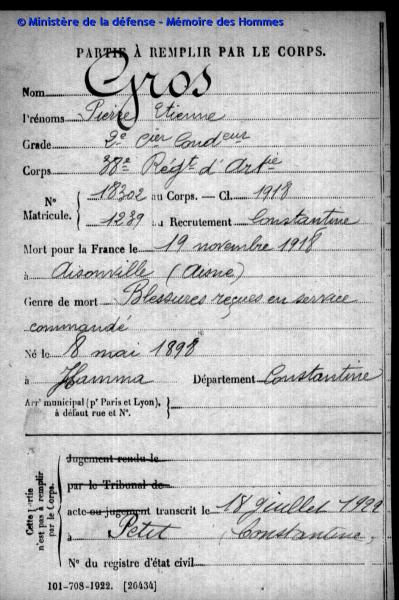 © Ministère de la défense - Mémoire des Hommes
PARTIE À REMPLIR PAR LE CORPS.
Nom Gros
Prénoms Pierre Etienne
Grade 2e Cier Condeur
Corps 38e Régt d'Artie
N° Matricule. 18302 au Corps. — Cl. 1918
1239 au Recrutement Constantine
Mort pour la France le 19 novembre 1918
à Aisonville (Aisne)
Genre de mort Blessures reçues en service
commandé
Né le 8 mai 1898
à Hamma Département Constantine
Arrt municipal (pr Paris et Lyon), à défaut rue et N°.
Cette partie n'est pas à remplir par le Corps.
Jugement rendu le
par le Tribunal de
acte ou jugement transcrit le 18 juillet 1922
à Petit (Constantine)
N° du registre d'état civil
101-708-1922. [26434]